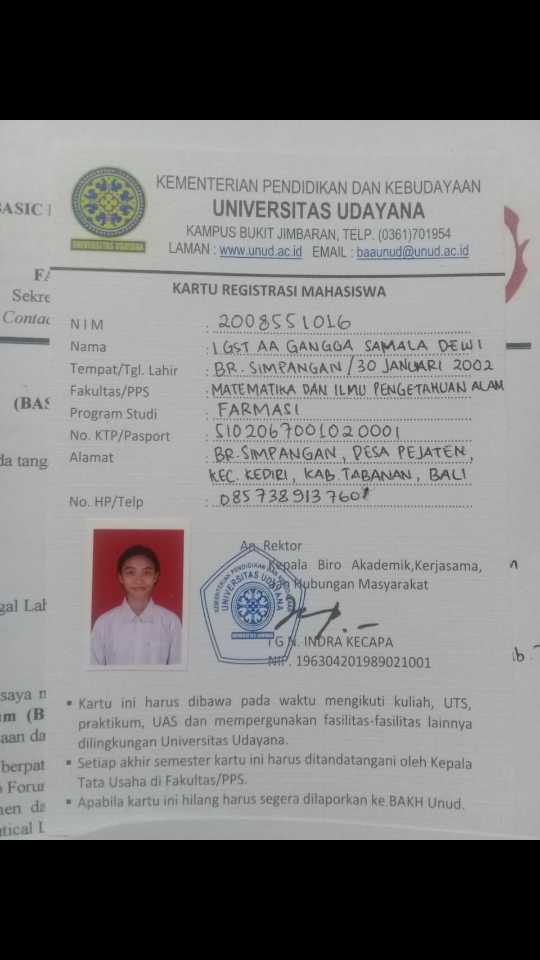 KEMENTERIAN PENDIDIKAN DAN KEBUDAYAAN
UNIVERSITAS UDAYANA
KAMPUS BUKIT JIMBARAN, TELP. (0361)701954
LAMAN : www.unud.ac.id EMAIL : baaunud@unud.ac.id
UNIVERSITAS UDAYANA
KARTU REGISTRASI MAHASISWA
NIM : 2008551016
Nama : I GST AA GANGGA SAMALA DEWI
Tempat/Tgl. Lahir : BR. SIMPANGAN / 30 JANUARI 2002
Fakultas/PPS : MATEMATIKA DAN ILMU PENGETAHUAN ALAM
Program Studi : FARMASI
No. KTP/Pasport : 5102067001020001
Alamat : BR. SIMPANGAN, DESA PEJATEN,
KEC. KEDIRI, KAB. TABANAN, BALI
No. HP/Telp : 085738913760
An. Rektor
Kepala Biro Akademik,Kerjasama,
dan Hubungan Masyarakat
KEMENTERIAN PENDIDIKAN DAN
UNIVERSITAS UDAYANA
I G N. INDRA KECAPA
NIP. 196304201989021001
• Kartu ini harus dibawa pada waktu mengikuti kuliah, UTS,
praktikum, UAS dan mempergunakan fasilitas-fasilitas lainnya
dilingkungan Universitas Udayana.
• Setiap akhir semester kartu ini harus ditandatangani oleh Kepala
Tata Usaha di Fakultas/PPS.
• Apabila kartu ini hilang harus segera dilaporkan ke BAKH Unud.